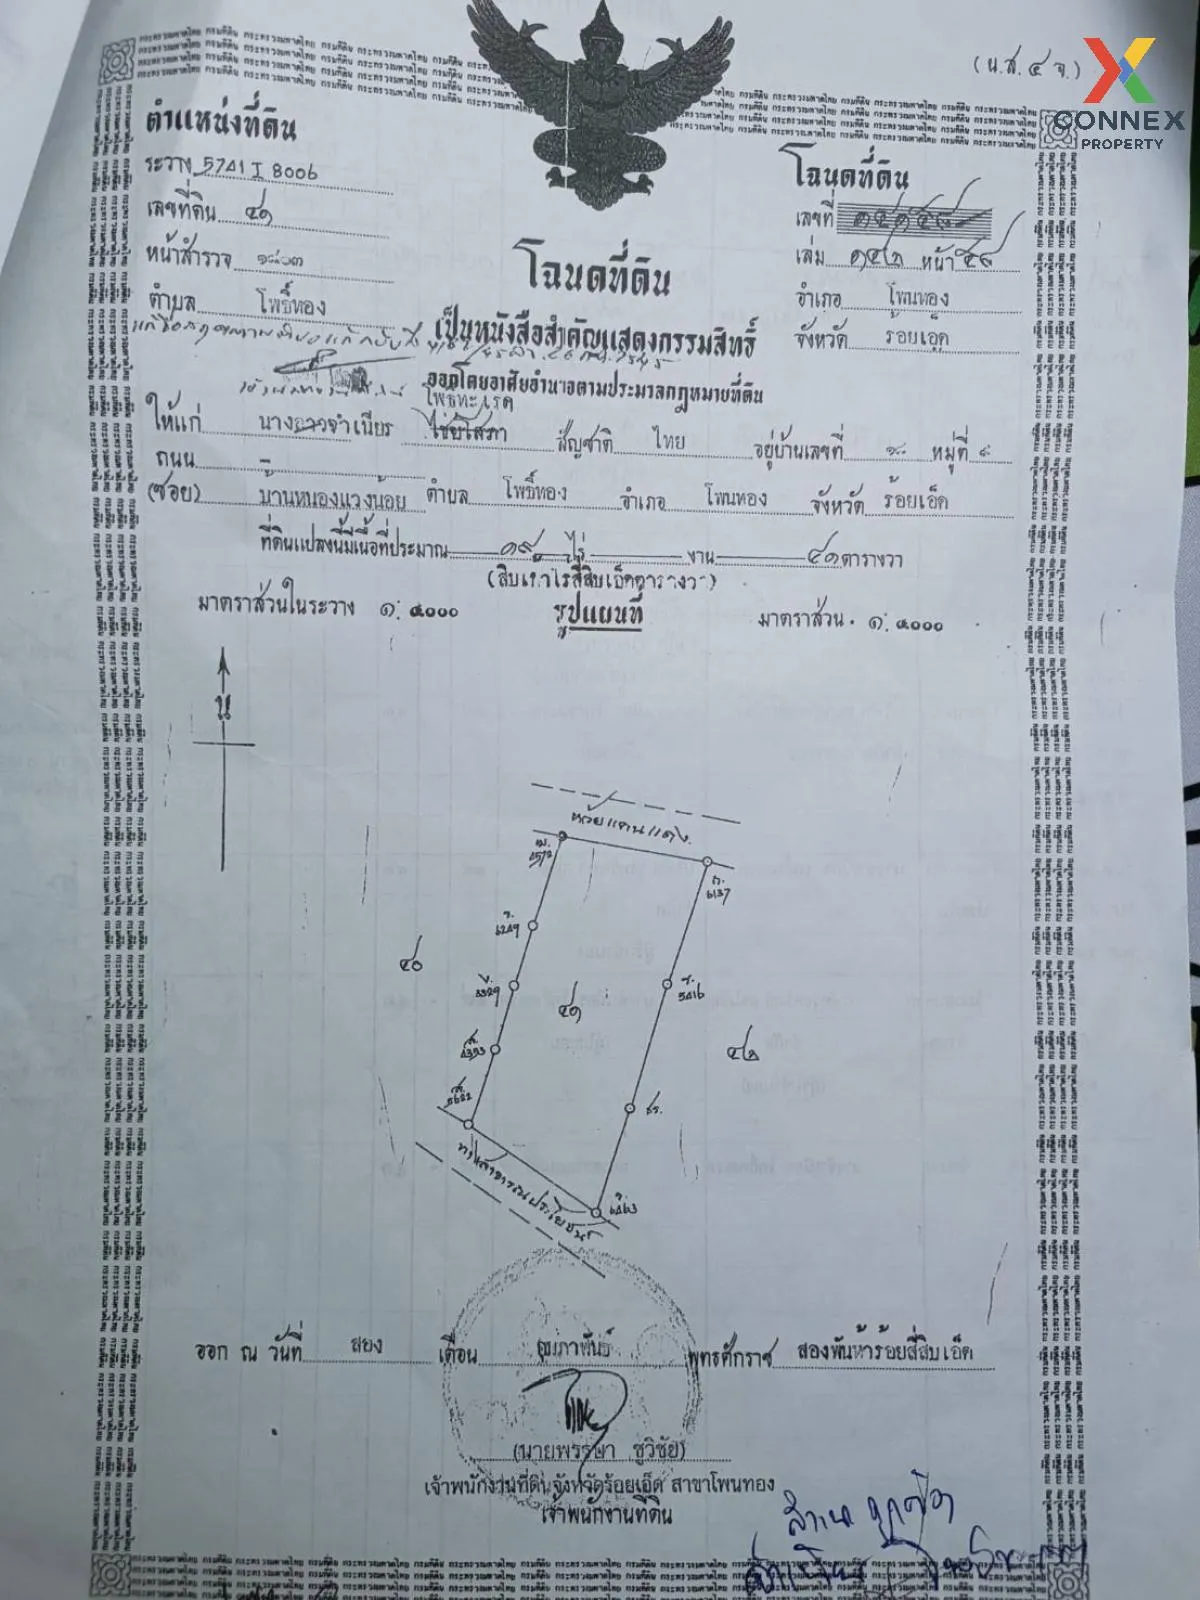 (น.ส. ๔ จ.)
CONNEX
PROPERTY
ตำแหน่งที่ดิน
ระวาง 5741 I 8006
เลขที่ดิน ๔๑
หน้าสำรวจ
ตำบล โพธิ์ทอง
โฉนดที่ดิน
เลขที่
เล่ม ๑๔๒ หน้า ๕๘
อำเภอ โพนทอง
จังหวัด ร้อยเอ็ด
โฉนดที่ดิน
เป็นหนังสือสำคัญแสดงกรรมสิทธิ์
ออกโดยอาศัยอำนาจตามประมวลกฎหมายที่ดิน
ให้แก่ จำเนียร ไชยโสภา สัญชาติ ไทย อยู่บ้านเลขที่ ๑๐ หมู่ที่ ๙
ถนน -
(ซอย) บ้านหนองแวงน้อย ตำบล โพธิ์ทอง อำเภอ โพนทอง จังหวัด ร้อยเอ็ด
ที่ดินแปลงนี้มีเนื้อที่ประมาณ ๑๙ ไร่ งาน ๔๑ ตารางวา
(สิบเก้าไร่สี่สิบเอ็ดตารางวา)
มาตราส่วนในระวาง ๑: ๔๐๐๐
รูปแผนที่
มาตราส่วน ๑: ๔๐๐๐
น
ห้วยแดนแดง
4572
6137
6249
๔๐
3329
๔๑
5416
4353
๔๒
5622
6463
ทางสาธารณประโยชน์
ออก ณ วันที่ สอง เดือน กุมภาพันธ์ พุทธศักราช สองพันห้าร้อยสี่สิบเอ็ด
(นายพรรษา ชูวิชัย)
เจ้าพนักงานที่ดินจังหวัดร้อยเอ็ด สาขาโพนทอง
เจ้าพนักงานที่ดิน
สำเนาถูกต้อง